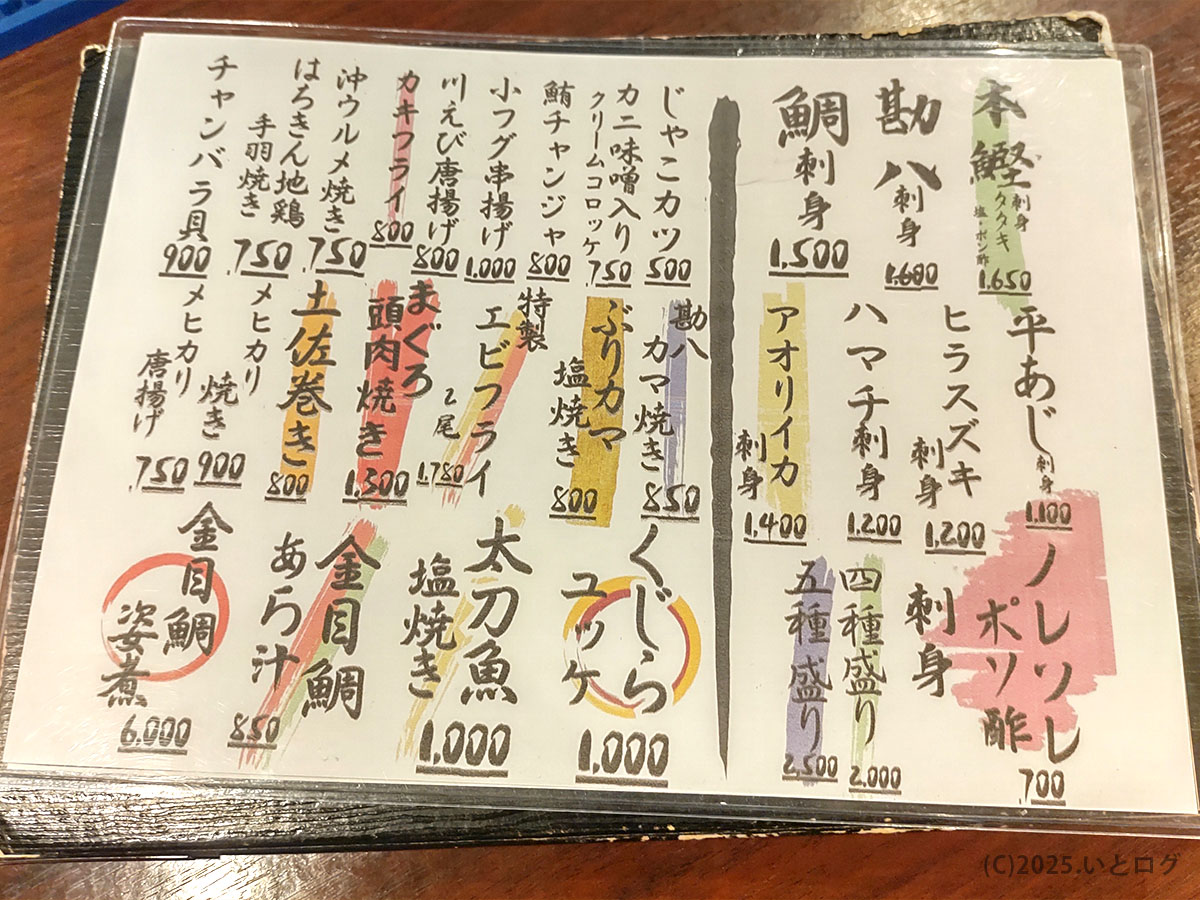 本鰹 刺身
タタキ
塩・ポン酢
1,650
勘八 刺身
1,600
鯛 刺身
1,500
平あじ 刺身
1,100
ヒラスズキ
刺身
1,200
ハマチ刺身
1,200
アオリイカ
刺身
1,400
ノレソレ
ポン酢
700
刺身
四種盛り
2,000
五種盛り
2,500
じゃこカツ
500
カニ味噌入り
クリームコロッケ
750
鮪チャンジャ
800
小フグ串揚げ
1,000
川えび唐揚げ
800
カキフライ
800
沖ウルメ焼き
750
はちきん地鶏
手羽焼き
750
チャンバラ貝
900
勘八
カマ焼き
850
ぶりカマ
塩焼き
800
特製
エビフライ
2尾
1,780
まぐろ
頭肉焼き
1,300
土佐巻き
800
メヒカリ
焼き
900
メヒカリ
唐揚げ
750
くじら
ユッケ
1,000
太刀魚
塩焼き
1,000
金目鯛
あら汁
850
金目鯛
姿煮
6,000
(C)2025.いとログ